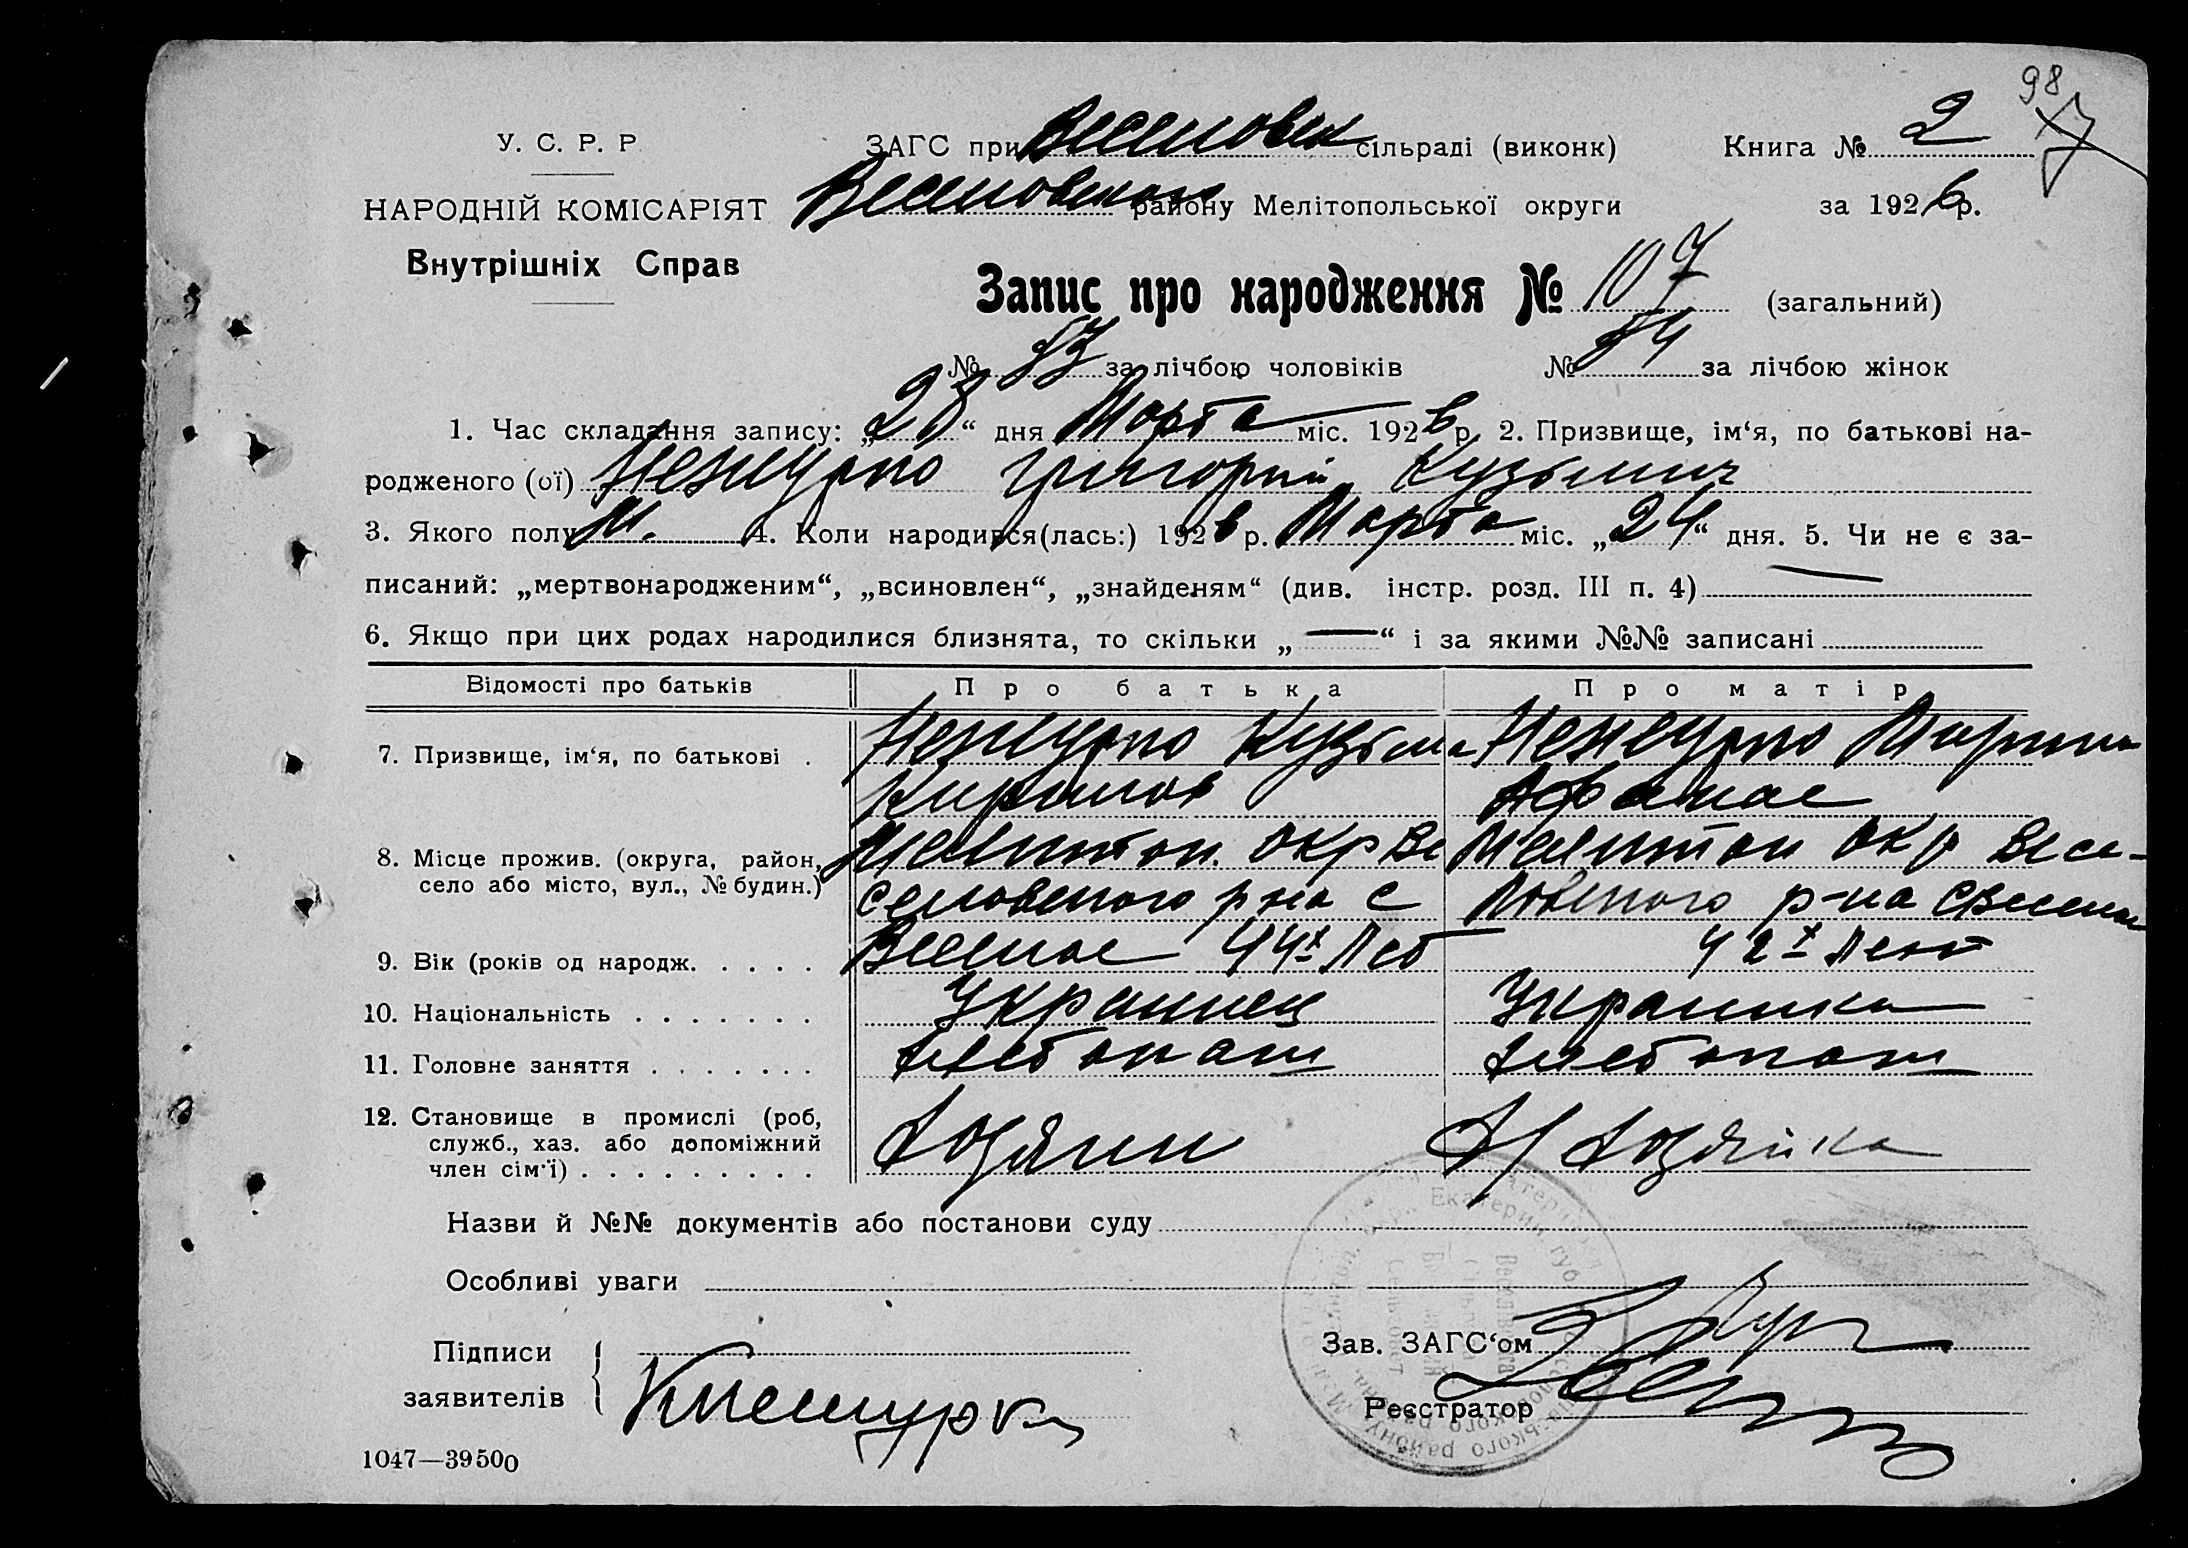 98
У. С. Р. Р
ЗАГС при Веселовск сільраді (виконк)
Книга № 2
НАРОДНІЙ КОМІСАРІЯТ
Веселовского району Мелітопольської округи
за 1926 р.
Внутрішніх Справ
Запис про народження № 107 (загальний)
№ 53 за лічбою чоловіків № 54 за лічбою жінок
1. Час складання запису: „28“ дня Марта міс. 1926 р. 2. Призвище, ім‘я, по батькові на-
родженого (ої) Ненцурко Григорий Кузьмич
3. Якого полу М. 4. Коли народився(лась:) 1926 р. Марта міс. „24“ дня. 5. Чи не є за-
писаний: „мертвонародженим“, „всиновлен“, „знайденям“ (див. інстр. розд. III п. 4) —
6. Якщо при цих родах народилися близнята, то скільки „—“ і за якими №№ записані
Відомості про батьків Про батька Про матір
7. Призвище, ім‘я, по батькові . Кузьма Марина
Афанас
8. Місце прожив. (округа, район, Мелитоп. окр Ве Мелитоп окр Весе-
село або місто, вул., № будин.) селовского р на с ловского р-на с Веселое
9. Вік (років од народж. . . . . Веселое 44х Лет 42х Лет
10. Національність . . . . . . . Украинец Украинка
11. Головне заняття . . . . . . . хлебопаш хлебопаш
12. Становище в промислі (роб,
служб., хаз. або допоміжний Хозяин Д/Хозяйка
член сім‘ї) . . . . . . . . .
Назви й №№ документів або постанови суду
Особливі уваги
Підписи
заявителів
Зав. ЗАГС‘ом
Реєстратор
1047—39500